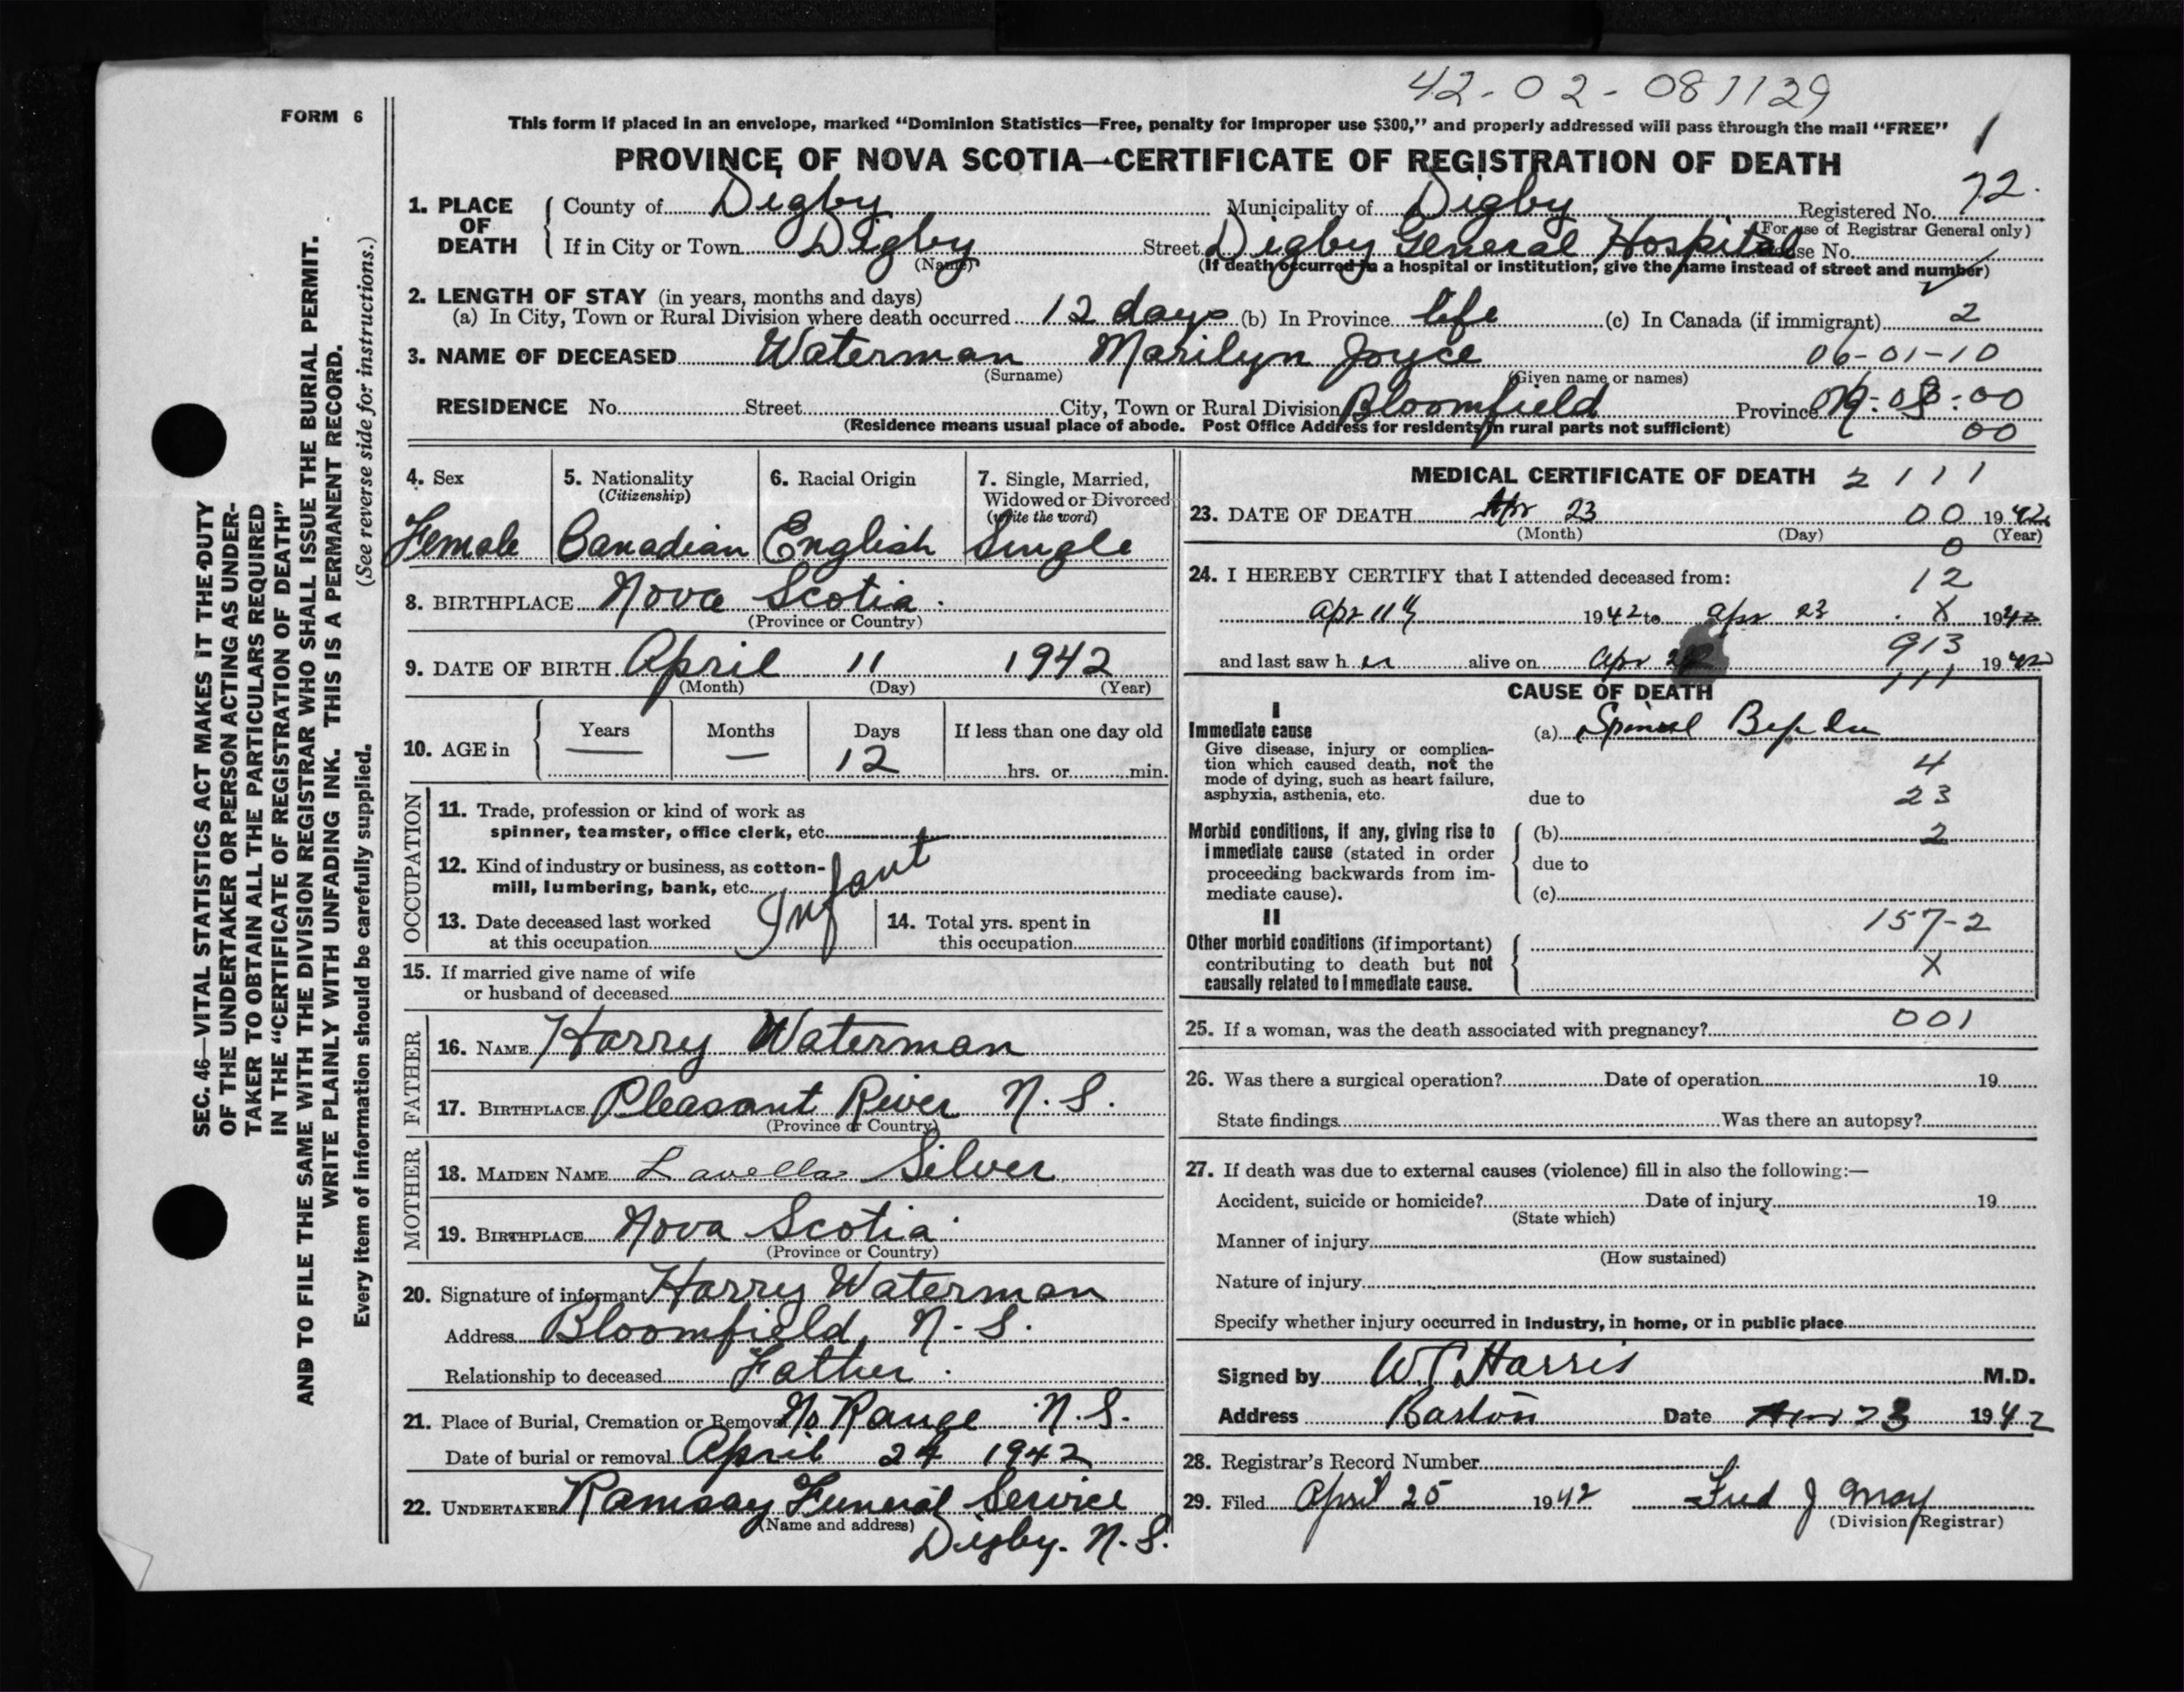 42-02-081129
FORM 6
This form if placed in an envelope, marked "Dominion Statistics—Free, penalty for improper use $300," and properly addressed will pass through the mail "FREE"
PROVINCE OF NOVA SCOTIA—CERTIFICATE OF REGISTRATION OF DEATH
1. PLACE OF DEATH { County of Digby Municipality of Digby Registered No. 72.
(For use of Registrar General only)
If in City or Town Digby Street Digby General Hospital House No.
(Name) (If death occurred in a hospital or institution, give the name instead of street and number)
2. LENGTH OF STAY (in years, months and days)
(a) In City, Town or Rural Division where death occurred 12 days (b) In Province life (c) In Canada (if immigrant) 2
3. NAME OF DECEASED Waterman Marilyn Joyce 06-01-10
(Surname) (Given name or names)
RESIDENCE No. Street City, Town or Rural Division Bloomfield Province
(Residence means usual place of abode. Post Office Address for residents in rural parts not sufficient) 00
4. Sex 5. Nationality (Citizenship) 6. Racial Origin 7. Single, Married, Widowed or Divorced (write the word)
Female Canadian English Single
8. BIRTHPLACE Nova Scotia.
(Province or Country)
9. DATE OF BIRTH April 11 1942
(Month) (Day) (Year)
10. AGE in { Years Months Days If less than one day old
— — 12 hrs. or min.
OCCUPATION
11. Trade, profession or kind of work as
spinner, teamster, office clerk, etc.
12. Kind of industry or business, as cotton-
mill, lumbering, bank, etc. Infant
13. Date deceased last worked
at this occupation
14. Total yrs. spent in
this occupation
15. If married give name of wife
or husband of deceased
FATHER
16. NAME Harry Waterman
17. BIRTHPLACE Pleasant River N.S.
(Province or Country)
MOTHER
18. MAIDEN NAME Lavella Silver
19. BIRTHPLACE Nova Scotia.
(Province or Country)
20. Signature of informant Harry Waterman
Address Bloomfield, N.S.
Relationship to deceased Father.
21. Place of Burial, Cremation or Removal No Range N.S.
Date of burial or removal April 24 1942
22. UNDERTAKER Ramsay Funeral Service
(Name and address) Digby. N.S.
MEDICAL CERTIFICATE OF DEATH 2 1 1 1
23. DATE OF DEATH Apr 23 00 1942
(Month) (Day) (Year)
0
24. I HEREBY CERTIFY that I attended deceased from: 12
Apr 11th 1942 to Apr 23 X 1942
and last saw her alive on Apr 913 1942
111
CAUSE OF DEATH
I
Immediate cause (a) Spinal
Give disease, injury or complica-
tion which caused death, not the 4
mode of dying, such as heart failure,
asphyxia, asthenia, etc. due to 23
Morbid conditions, if any, giving rise to { (b) 2
immediate cause (stated in order
proceeding backwards from im- due to
mediate cause). (c)
II 157-2
Other morbid conditions (if important) {
contributing to death but not X
causally related to immediate cause.
25. If a woman, was the death associated with pregnancy? 001
26. Was there a surgical operation? Date of operation 19
State findings Was there an autopsy?
27. If death was due to external causes (violence) fill in also the following:—
Accident, suicide or homicide? Date of injury 19
(State which)
Manner of injury
(How sustained)
Nature of injury
Specify whether injury occurred in industry, in home, or in public place
Signed by W C Harris M.D.
Address Barton Date Apr 23 1942
28. Registrar's Record Number
29. Filed April 25 1942 Fred J May
(Division Registrar)
SEC. 46—VITAL STATISTICS ACT MAKES IT THE DUTY
OF THE UNDERTAKER OR PERSON ACTING AS UNDER-
TAKER TO OBTAIN ALL THE PARTICULARS REQUIRED
IN THE "CERTIFICATE OF REGISTRATION OF DEATH"
AND TO FILE THE SAME WITH THE DIVISION REGISTRAR WHO SHALL ISSUE THE BURIAL PERMIT.
WRITE PLAINLY WITH UNFADING INK. THIS IS A PERMANENT RECORD.
Every item of information should be carefully supplied. (See reverse side for instructions.)